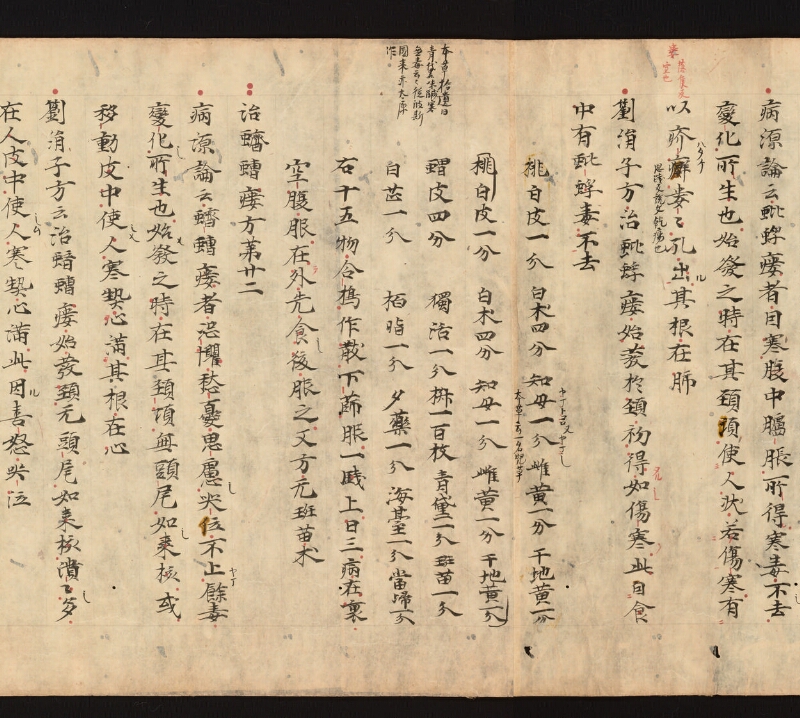 病源論云蚍蜉瘻者由寒腹中臈脹所得寒毒不去
變化所生也始發之時在其頸項使人狀若傷寒有
以疥癬婁々孔出其根在肺
劉涓子方治蚍蜉瘻始發於頸初得如傷寒此自食
中有蚍蜉毒不去
桃白皮一分 白朮四分 知母一分 雌黃一分 干地黃一分
桃白皮一分 白朮四分 知母一分 雌黃一分 干地黃一分
蝟皮四分 獨活一分 椒一百枚 青黛二分 斑苗一分
白芷一分 栢脂一分 夕藥一分 海藻一分 當歸一分
本草拾遺曰
右十五物合搗作散下蒒服一錢上日三病在裏
空腹服在外先食後服之又方无斑苗朮
治蠐螬瘻方第廿二
病源論云蠐螬瘻者恐懼愁憂思慮哭位不上餘毒
變化所生也始發之時在其頸項無頭尾如棗核或
移動皮中使人寒熱心滿其根在心
劉涓子方云治蠐螬瘻始發頸无頭尾如棗核潰々多
在人皮中使人寒熱心滿此因喜怒哭泣